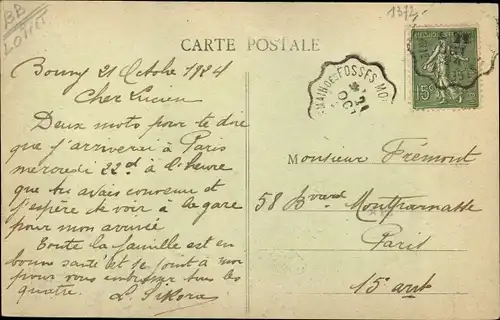 BP
LOIRET
1373
CARTE POSTALE
MAIN DES FOSSES
21
OCT
15c
21 Octobre 1924
Cher Lucien
Deux mots pour te dire
que j'arriverai à Paris
mercredi 22 d à l'heure
que tu avais convenu et
j'espère te voir à la gare
pour mon arrivée
Toute la famille est en
bonne santé et se joint à moi
pour vous embrasser tous les
quatre. L. Sikora
Monsieur Frémont
58 Bvard Montparnasse
Paris
15e arrt